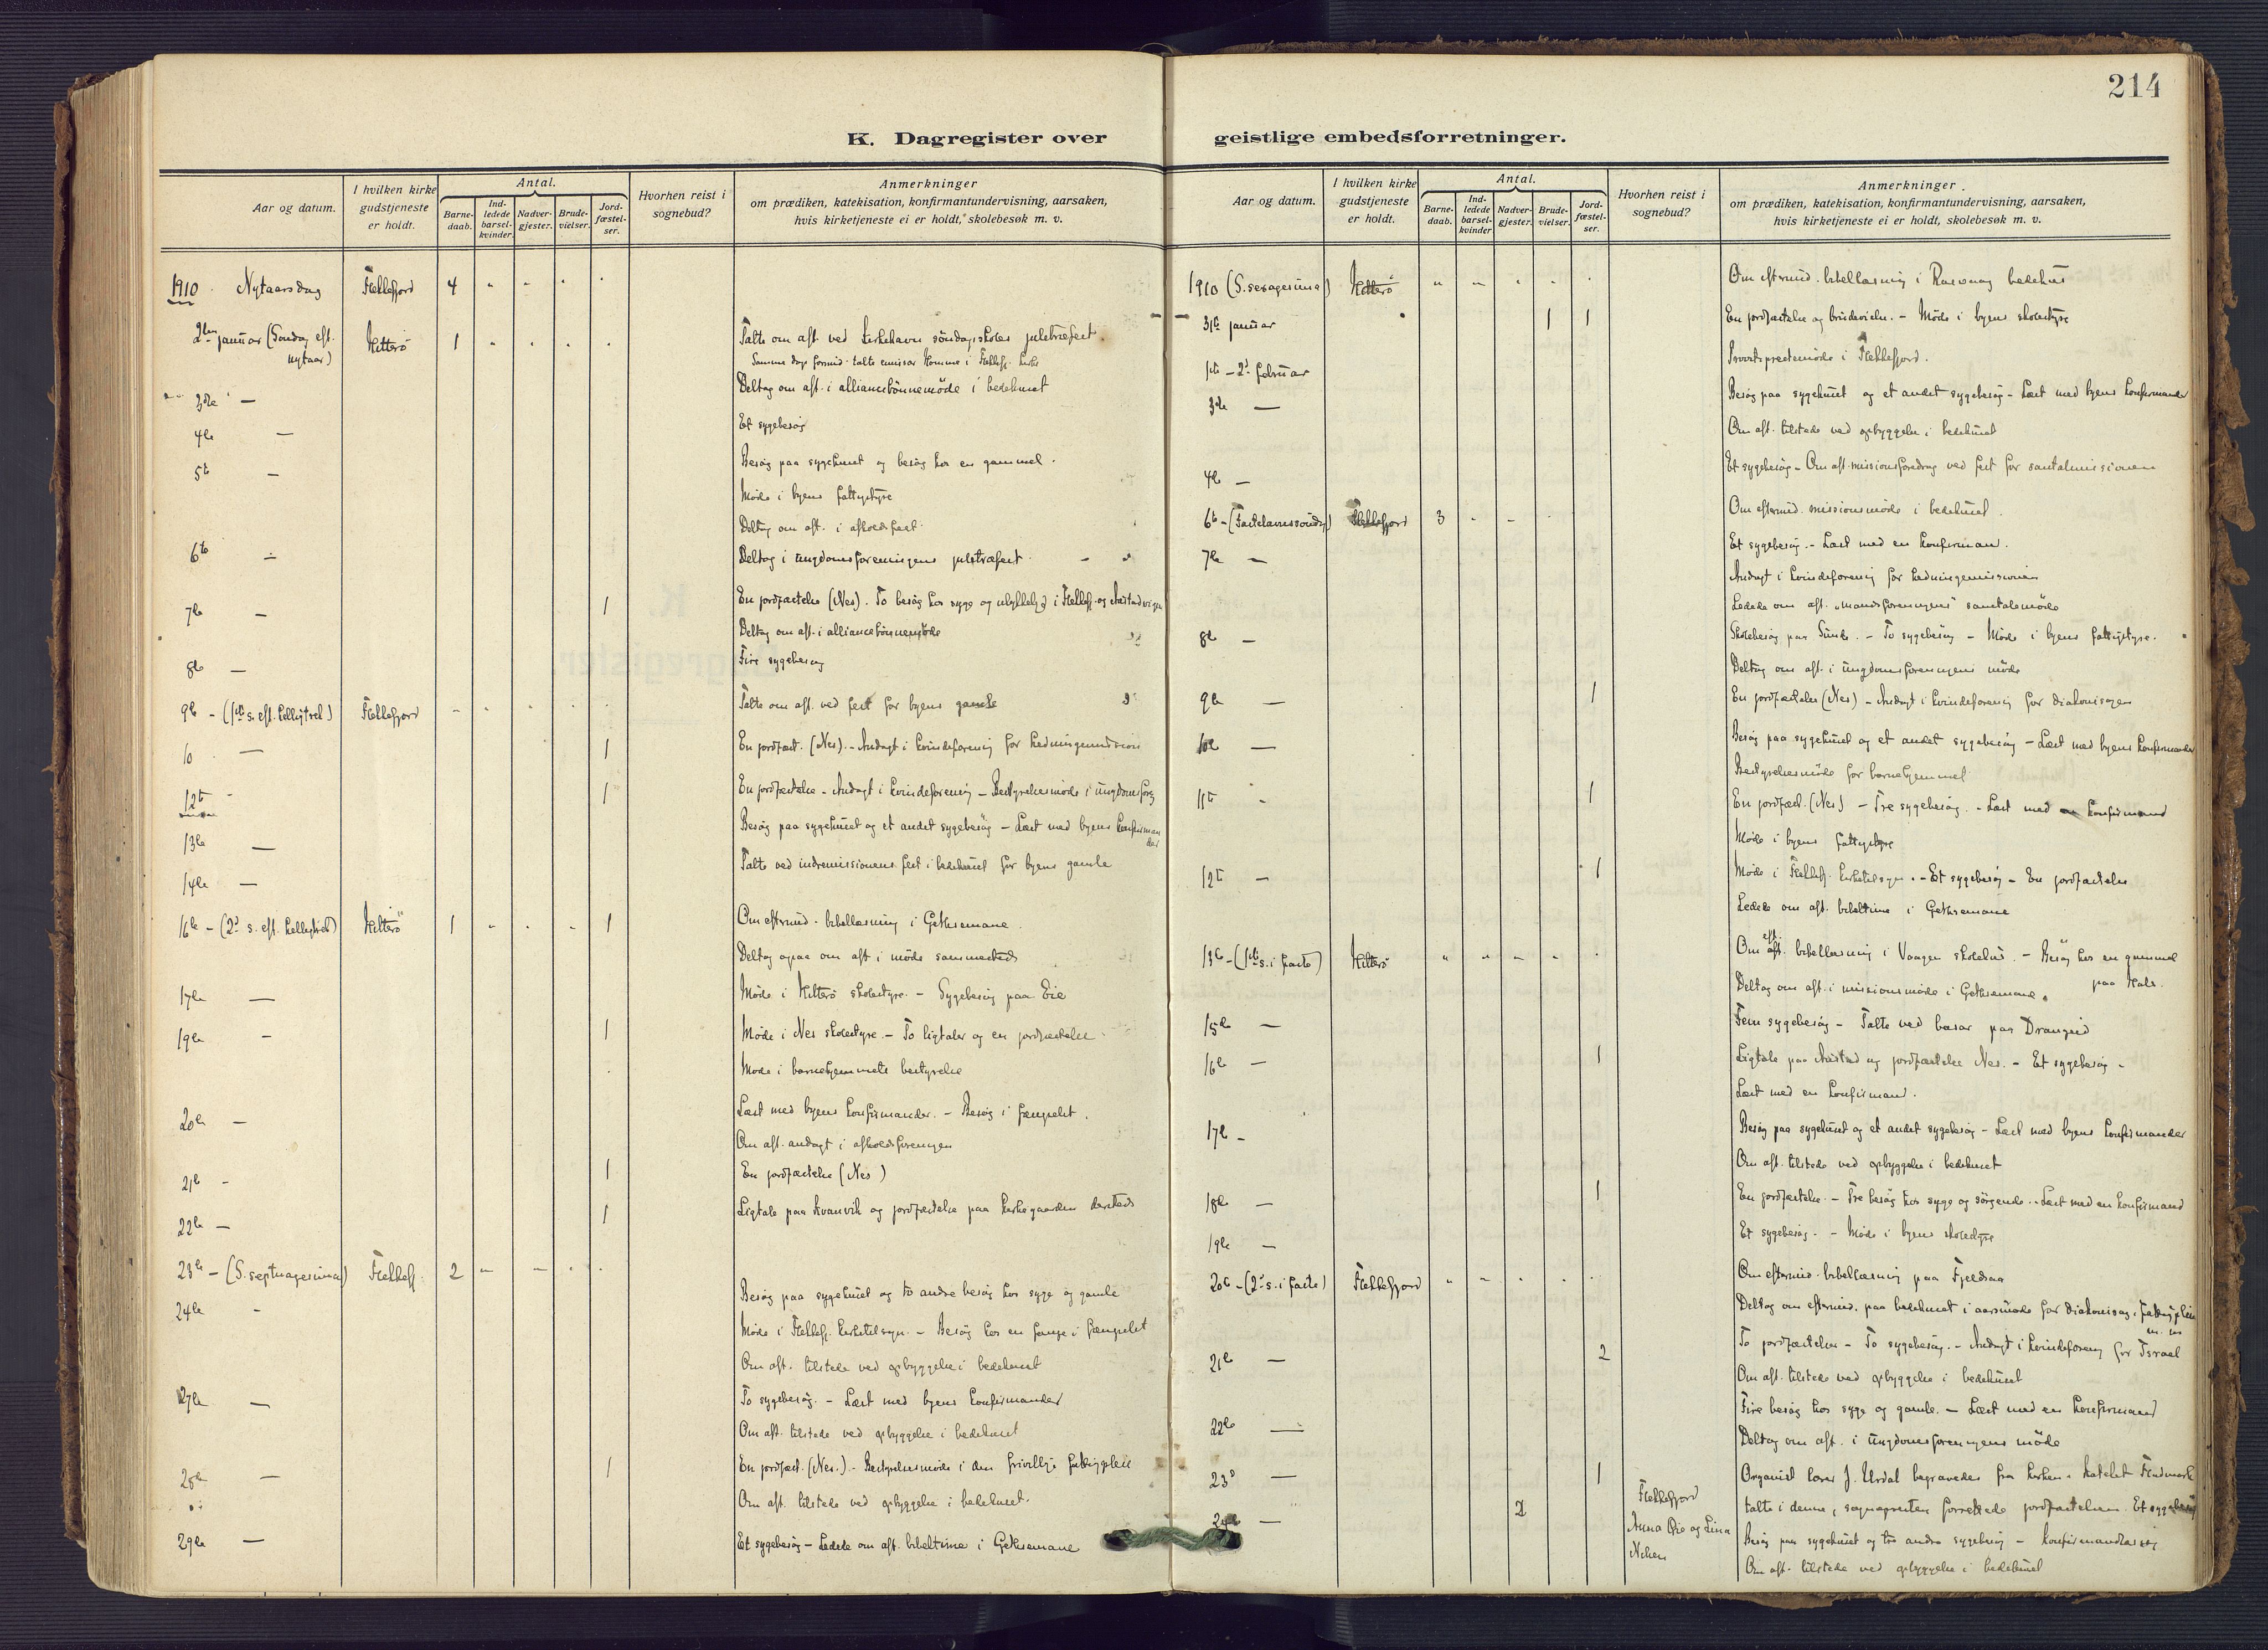 214
K. Dagregister over geistlige embedsforretninger.
Aar og datum.
I hvilken kirke gudstjeneste er holdt.
Antal.
Barne-daab.
Ind-ledede barsel-kvinder.
Nadver-gjester.
Brude-vielser.
Jord-fæstel-ser.
Hvorhen reist i sognebud?
Anmerkninger
om prædiken, katekisation, konfirmantundervisning, aarsaken,
hvis kirketjeneste ei er holdt, skolebesøk m. v.
1910. Nytaarsdag Flekkefjord 4 " " " "
2den januar (Søndag eft. nytaar) Hitterö 1 " " " " Talte om aft. ved Kirkehavn söndagsskoles juletræfest.
Samme dags formid. talte emissær Homme i Flekkefj. kirke
3die — Deltog om aft. i alliancebönnemöde i bedehuset
4de — Et sygebesög
5te — Besög paa sygehuset og besög hos en gammel.
Möde i byens fattigstyre
Deltog om aft. i afholdsfest
6te — Deltog i ungdomsforeningens juletræfest
7de — 1 En jordfæstelse (Nes). To besög hos syge og ulykkelige i Flekkefj. og Austadvigen
Deltog om aft. i alliancebönnemöde
8de — Fire sygebesög
9de — (1ste s. eft. helligtrek.) Flekkefjord " " " " " Talte om aft. ved fest for byens gamle
10 — 1 En jordfæst. (Nes). - Andagt i kvindeforening for hedningemission
12te - 1 En jordfæstelse - Andagt i kvindeforening - Bestyrelsesmöde i ungdomsforg
13de — Besög paa sygehuset og et andet sygebesög - Læst med byens konfirmander
14de — Talte ved indremissionens fest i bedehuset for byens gamle
16de - (2d s. eft. helligtrek.) Hitterö 1 " " " 1 Om eftermid. bibellæsning i Gethsemane.
Deltog ogsaa om aft i möde sammesteds
17de — Möde i Hitterö skolestyre. - Sygebesög paa Eie
19de — 1 Möde i Nes skolestyre. - To ligtaler og en jordfæstelse
Möde i barnehjemmets bestyrelse
20de — Læst med byens konfirmander. - Besög i fængselet.
Om aft. andagt i afholdsforeningen
21de - 1 En jordfæstelse (Nes)
22de — 1 Ligtale paa Kvanvik og jordfæstelse paa kirkegaarden dersteds
23de - (S. septuagesima) Flekkefj. 2 " " " "
24de - Besög paa sygehuset og to andre besög hos syge og gamle
Möde i Flekkefj. kirketilsyn. - Besög hos en fange i fængselet
Om aft. tilstede ved opbyggelse i bedehuset
27de — To sygebesög. - Læst med byens konfirmander
Om aft. tilstede ved opbyggelse i bedehuset
28de — 1 En jordfæst. (Nes.) - Bestyrelsesmöde i den frivillige fattigpleie
Om aft. tilstede ved opbyggelse i bedehuset.
29de — Et sygebesög - Ledede om aft. bibeltime i Gethsemane
Aar og datum.
I hvilken kirke gudstjeneste er holdt.
Antal.
Barne-daab.
Ind-ledede barsel-kvinder
Nadver-gjester.
Brude-vielser.
Jord-fæstel-ser.
Hvorhen reist i sognebud?
Anmerkninger.
om prædiken, katekisation, konfirmantundervisning, aarsaken,
hvis kirketjeneste ei er holdt, skolebesøk m. v.
1910 (S. sexagesima) Hitterö " " " " Om eftermid. bibellæsning i Rasvaag bedehus
31te januar 1 1 En jordfæstelse og brudevielse. - Möde i byens skolestyre
1ste - 2d februar Provstiprestemöde i Flekkefjord.
3die — Besög paa sygehuset og et andet sygebesög - Læst med byens konfirmander
Om aft. tilstede ved opbyggelse i bedehuset
4de — Et sygebesög - Om aft. missionsforedrag ved fest for santalmissionen
6te - (Fastelavnssöndag) Flekkefjord 3 " " " Om eftermid. missionsmöde i bedehuset.
7de — Et sygebesög. - Læst med en konfirman.
Andagt i kvindeforening for hedningemissionen
Ledede om aft. "mandsforeningens" samtalemöde
8de — Skolebesög paa Sunde. - To sygebesög - Möde i byens fattigstyre.
Deltog om aft. i ungdomsforeningens möde
9de — 1 En jordfæstelse (Nes) - Andagt i kvindeforening for diakonisagen
10de — Besög paa sygehuset og et andet sygebesög - Læst med byens konfirmander
Bestyrelsesmöde for barnehjemmet
11te - 1 En jordfæst. (Nes) - Tre sygebesög. - Læst med en konfirmand
Möde i byens fattigstyre
12te — 1 Möde i Flekkefj. kirketilsyn. - Et sygebesög - En jordfæstelse
Ledede om aft. bibeltime i Gethsemane
13de - (1ste s. i faste) Hitterö " " " " " Om eft. bibellæsning i Vaagen skolehus. - Besög hos en gammel paa Hals.
Deltog om aft. i missionsmöde i Gethsemane.
15de — Fem sygebesög - Talte ved basar paa Drangeid
16de — 1 Ligtale paa Austad og jordfæstelse Nes. - Et sygebesög -
Læst med en konfirmand.
17de - Besög paa sygehuset og et andet sygebesög - Læst med byens konfirmander
Om aft. tilstede ved opbyggelse i bedehuset
18de — 1 En jordfæstelse. - Tre besög hos syge og sörgende. - Læst med en konfirmand
19de — Et sygebesög. - Möde i byens skolestyre
20de - (2d s. i faste) Flekkefjord " " " " " Om eftermid. bibellæsning paa Fjeldsaa
Deltog om eftermid. paa bedehuset i aarsmöde for diakonisag, fattigpleie m. m
21de — 2 To jordfæstelser - To sygebesög. - Andagt i kvindeforening for Israel
Om aft. tilstede ved opbyggelse i bedehuset
22de — Fire besög hos syge og gamle. - Læst med en konfirmand
Deltog om aft. i ungdomsforeningens möde
23d — 1 Organist lærer J. Urdal begravedes fra kirken.
talte i denne, sogneprester forrettede jordfæstelsen. Et sygebesög
24de — 2 Flekkefjord Anna Eie og Lina Besög paa sygehuset og tre andre sygebesög - konfirmandlæsning
Om aft. tilstede ved opbyggelse i bedehuset